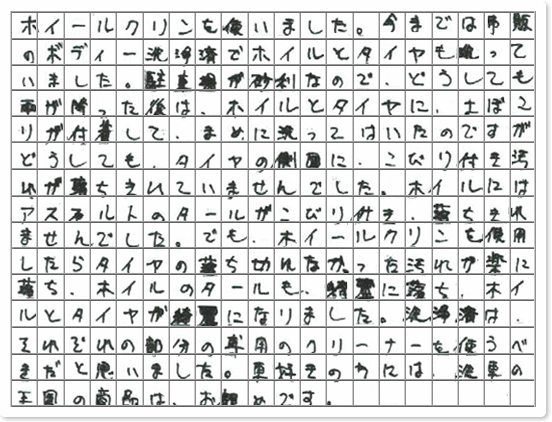 ホイールクリンを使いました。今までは市販
のボディー洗浄済でホイルとタイヤも洗って
いました。駐車場が砂利なので、どうしても
雨が降った後は、ホイルとタイヤに、土ぼこ
りが付着して、まめに洗ってはいたのですが
どうしても、タイヤの側面に、こびり付き汚
れが落ちきれていませんでした。ホイルには
アスファルトのタールがこびり付き、落ちきれ
ませんでした。でも、ホイールクリンを使用
したらタイヤの落ち切れなかった汚れが楽に
落ち、ホイルのタールも、綺麗に落ち、ホイ
ルとタイヤが綺麗になりました。洗浄済は、
それぞれの部分の専用のクリーナーを使うべ
きだと思いました。車好きの方には、洗車の
王国の商品は、お勧めです。